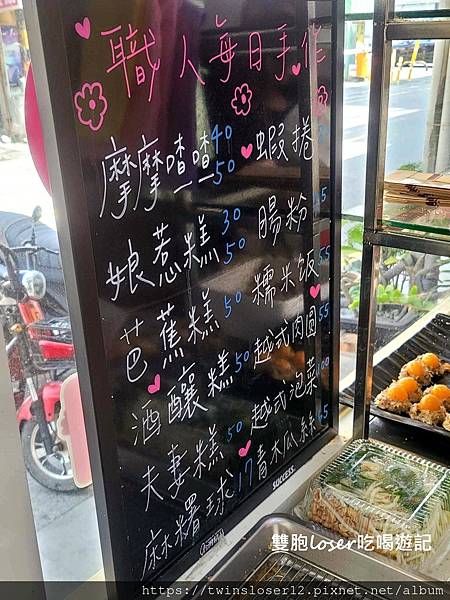 職人每日手作
摩摩喳喳 40 50
蝦捲
娘惹糕 30 50
腸粉
芭蕉糕 50
糯米飯 55
酒釀糕 50
越式肉圓 55
夫妻糕 50
越式泡菜
麻糬球 17
青木瓜絲
SUCCESS
雙胞loser吃喝遊記
https://twinsloser12.pixnet.net/album